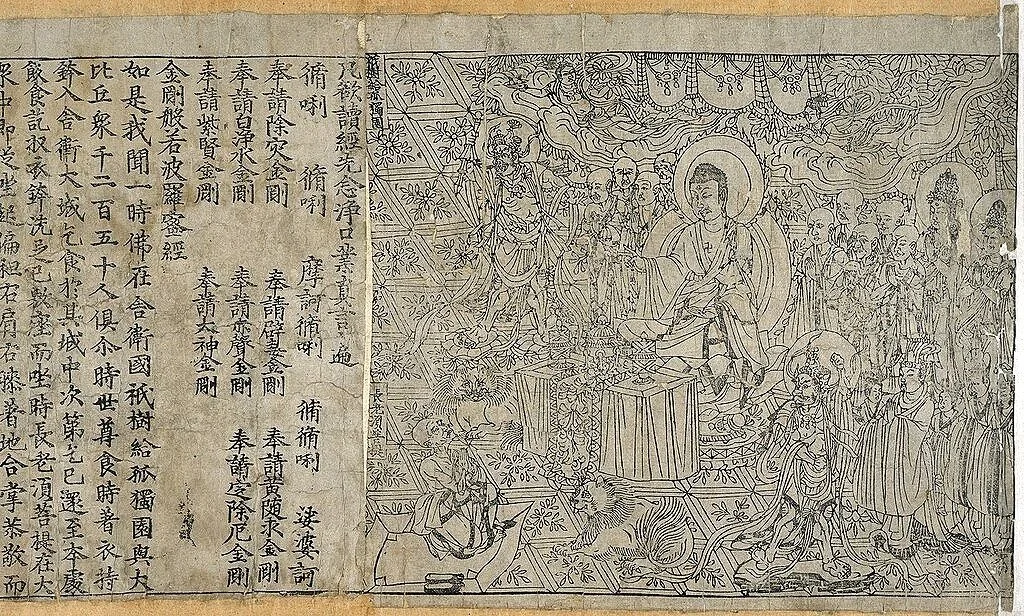 祇樹給孤獨園
凡欲讀經先念淨口業真言一遍
脩唎 脩唎 摩訶脩唎 脩脩唎 娑婆訶
奉請除灾金剛 奉請辟毒金剛 奉請黄随求金剛
奉請白淨水金剛 奉請赤聲金剛 奉請定除厄金剛
奉請紫賢金剛 奉請大神金剛
金剛般若波羅蜜經
如是我聞一時佛在舍衛國祇樹給孤獨園與大
比丘衆千二百五十人俱尒時世尊食時著衣持
鉢入舍衛大城乞食於其城中次第乞已還至本處
飯食訖収衣鉢洗足已敷座而坐時長老湏菩提在大
衆中即從座起偏袒右肩右膝著地合掌恭敬而